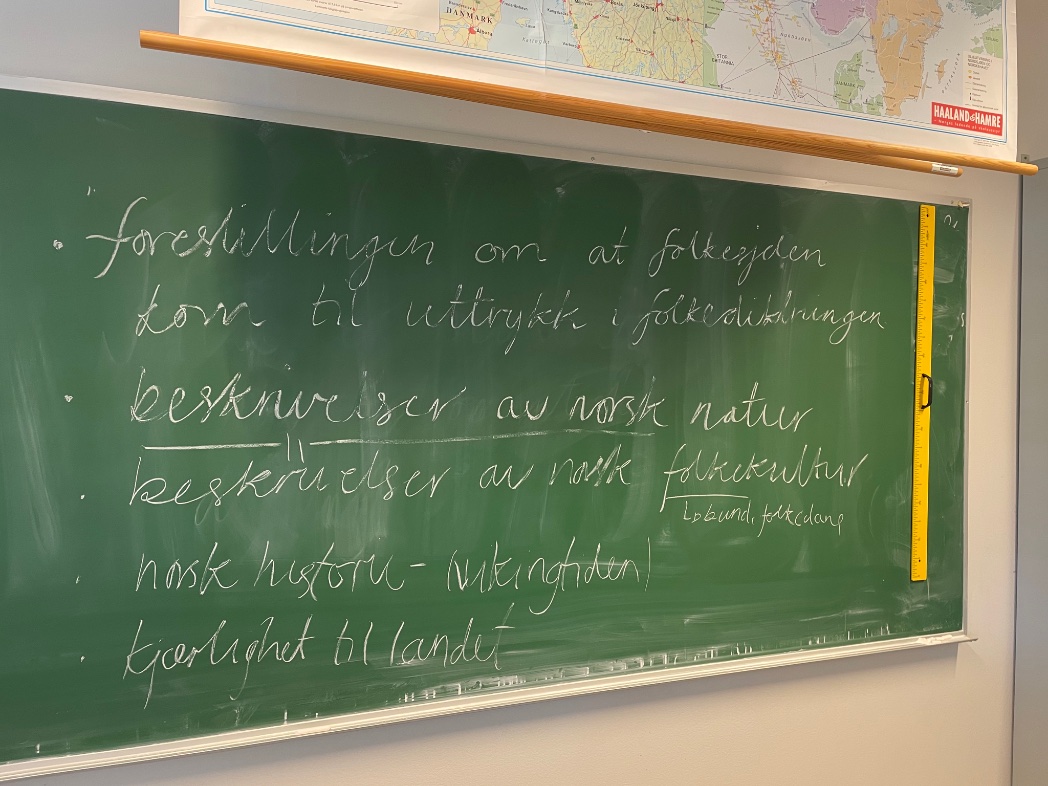 DANMARK
HAALAND & HAMRE
• forestillingen om at folkesjelen
kom til uttrykk i folkediktningen
• beskrivelser av norsk natur
• beskrivelser av norsk folkekultur
↳ bunad, folkedans
• norsk historie - (vikingtiden)
• kjærlighet til landet